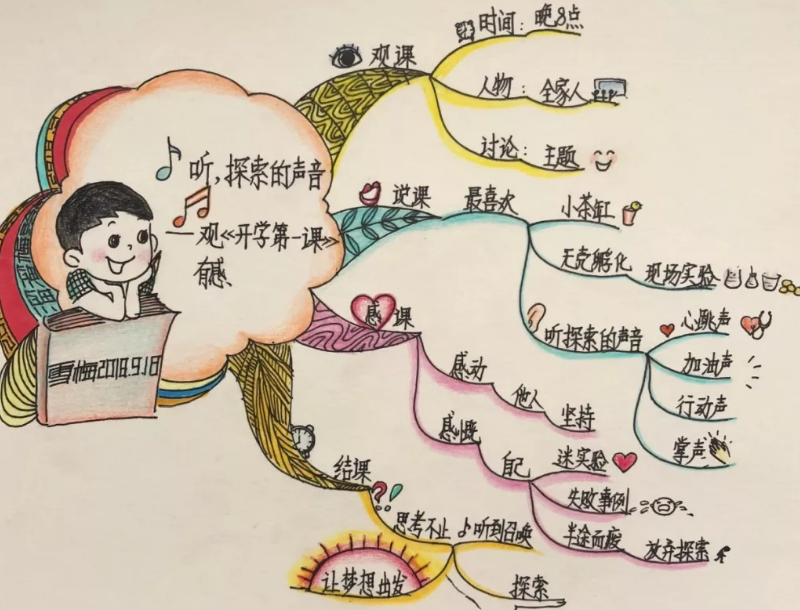 听,探索的声音
—观《开学第一课》
有感
雪梅2018.9.18
观课
时间:晚8点
人物:全家人
讨论:主题
说课
最喜欢
小茶缸
无壳孵化
现场实验
听探索的声音
心跳声
加油声
行动声
掌声
感课
感动
他人
坚持
感慨
自己
迷实验
失败事例
半途而废
放弃探索
结课
?!
思考不止
听到召唤
探索
让梦想出发